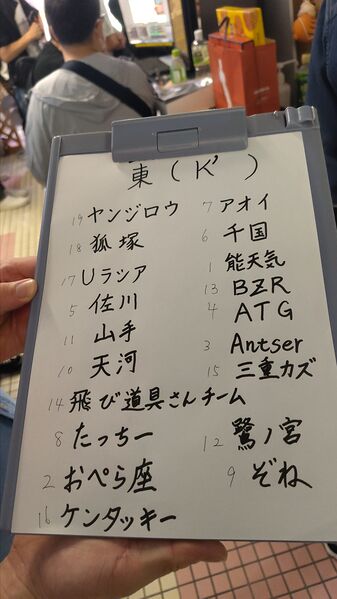 東（K'）
19 ヤンジロウ
7 アオイ
18 狐塚
6 千国
17 Uラシア
1 能天気
5 佐川
13 BZR
11 山手
4 ATG
10 天河
3 Antser
14 飛び道具さんチーム
15 三重カズ
8 たっちー
12 鷺ノ宮
2 おぺら座
9 ぞね
16 ケンタッキー